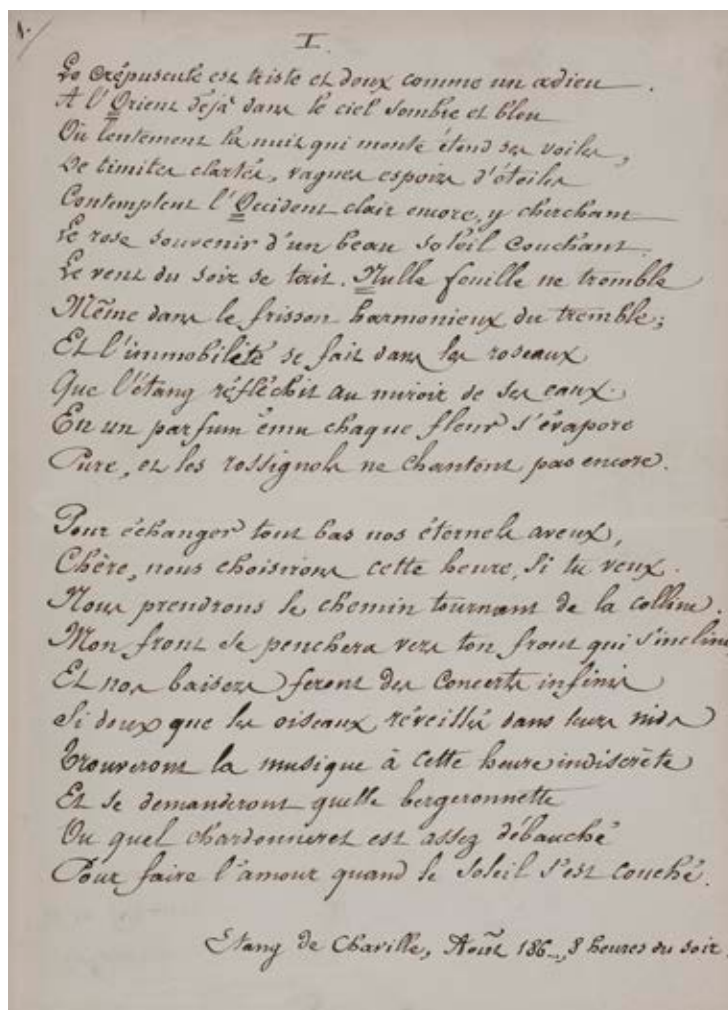 1.
I.
Le crépuscule est triste et doux comme un adieu.
A l'Orient déjà dans le ciel sombre et bleu
Où lentement la nuit qui monte étend ses voiles,
De timides clartés, vagues espoirs d'étoiles
Contemplent l'Occident clair encore, y cherchant
Le rose souvenir d'un beau soleil couchant.
Le vent du soir se tait. Nulle feuille ne tremble
Même dans le frisson harmonieux du tremble;
Et l'immobilité se fait dans les roseaux
Que l'étang réfléchit au miroir de ses eaux.
En un parfum ému chaque fleur s'évapore
Pure, et les rossignols ne chantent pas encore.
Pour échanger tout bas nos éternels aveux,
Chère, nous choisirons cette heure, si tu veux.
Nous prendrons le chemin tournant de la colline.
Mon front se penchera vers ton front qui s'incline
Et nos baisers feront des concerts infinis
Si doux que les oiseaux réveillés dans leurs nids
Trouveront la musique à cette heure indiscrète
Et se demanderont quelle bergeronnette
Ou quel chardonneret est assez débauché
Pour faire l'amour quand le soleil s'est couché.
Etang de Chaville, Août 186_, 8 heures du soir.